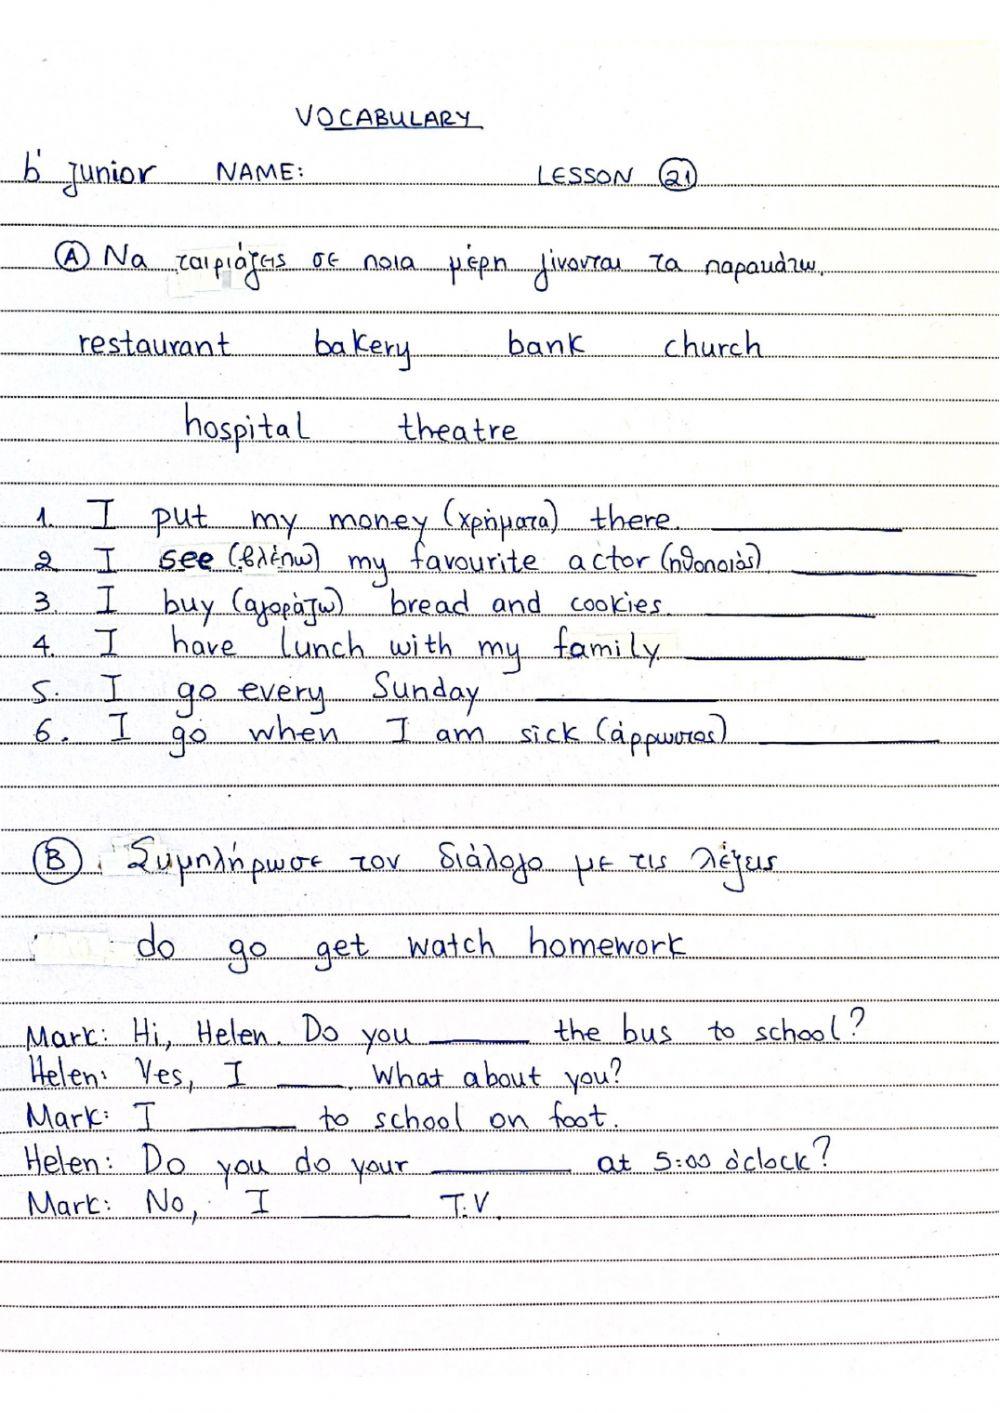 VOCABULARY
b' junior NAME: LESSON 21
A Να ταιριάξεις σε ποια μέρη γίνονται τα παρακάτω.
restaurant bakery bank church
hospital theatre
1. I put my money (χρήματα) there. ________
2 I see (βλέπω) my favourite actor (ηθοποιός) ________
3. I buy (αγοράζω) bread and cookies. ________
4. I have lunch with my family ________
5. I go every Sunday ________
6. I go when I am sick (άρρωστος) ________
B. Συμπλήρωσε τον διάλογο με τις λέξεις
do go get watch homework
Mark: Hi, Helen. Do you ______ the bus to school?
Helen: Yes, I ____. What about you?
Mark: I ______ to school on foot.
Helen: Do you do your ________ at 5:00 o'clock?
Mark: No, I ______ T.V.